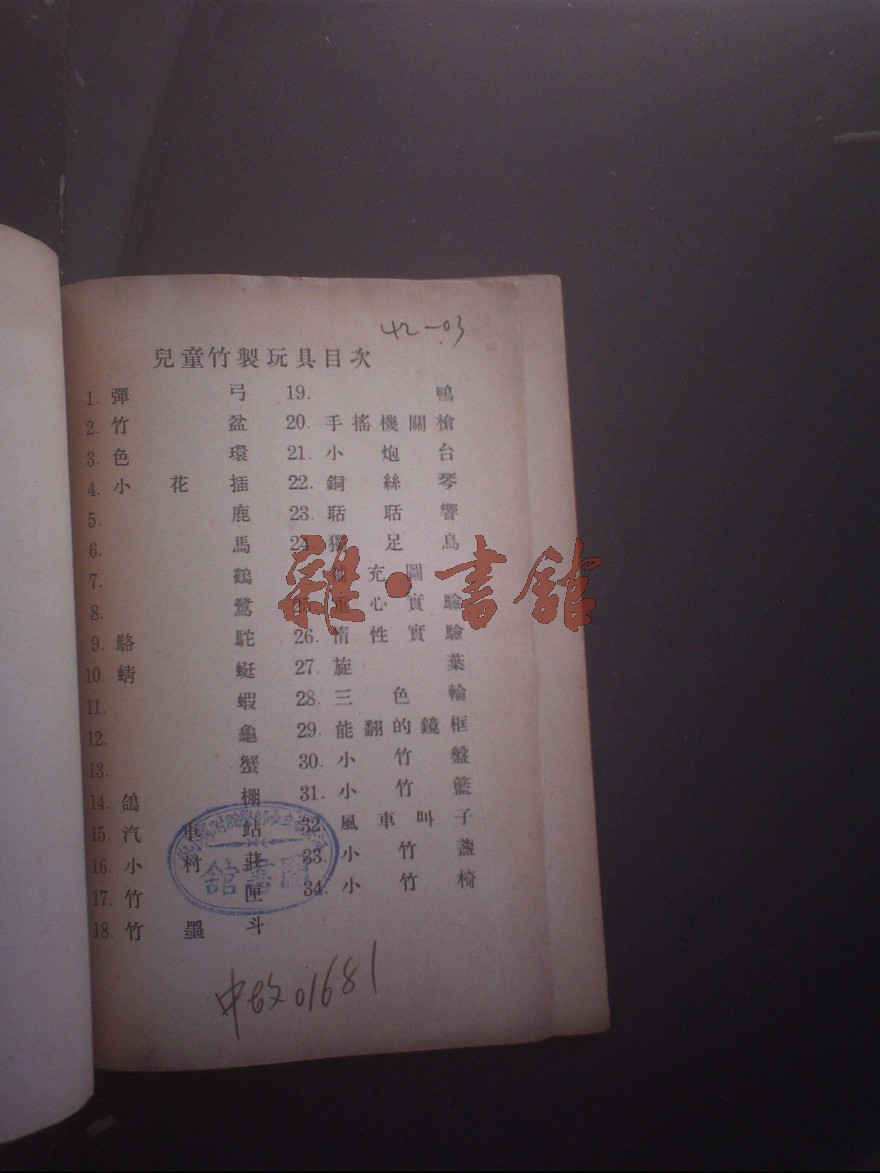 42-03
兒童竹製玩具目次
1. 彈弓
2. 竹盆
3. 色環
4. 小花插
5. 鹿
6. 馬
7. 鶴
8. 鷺
9. 駱駝
10. 蜻蜓
11. 蝦
12. 龜
13. 蟹
14. 鴿棚
15. 汽車站
16. 小村莊
17. 竹匣
18. 竹墨斗
19. 鴨
20. 手搖機關槍
21. 小炮台
22. 銅絲琴
23. 聒聒響
24. 獨足鳥
補充圖
25. 重心實驗
26. 惰性實驗
27. 旋葉
28. 三色輪
29. 能翻的鏡框
30. 小竹盤
31. 小竹籃
32. 風車叫子
33. 小竹盞
34. 小竹椅
雜·書館
圖書館
01681